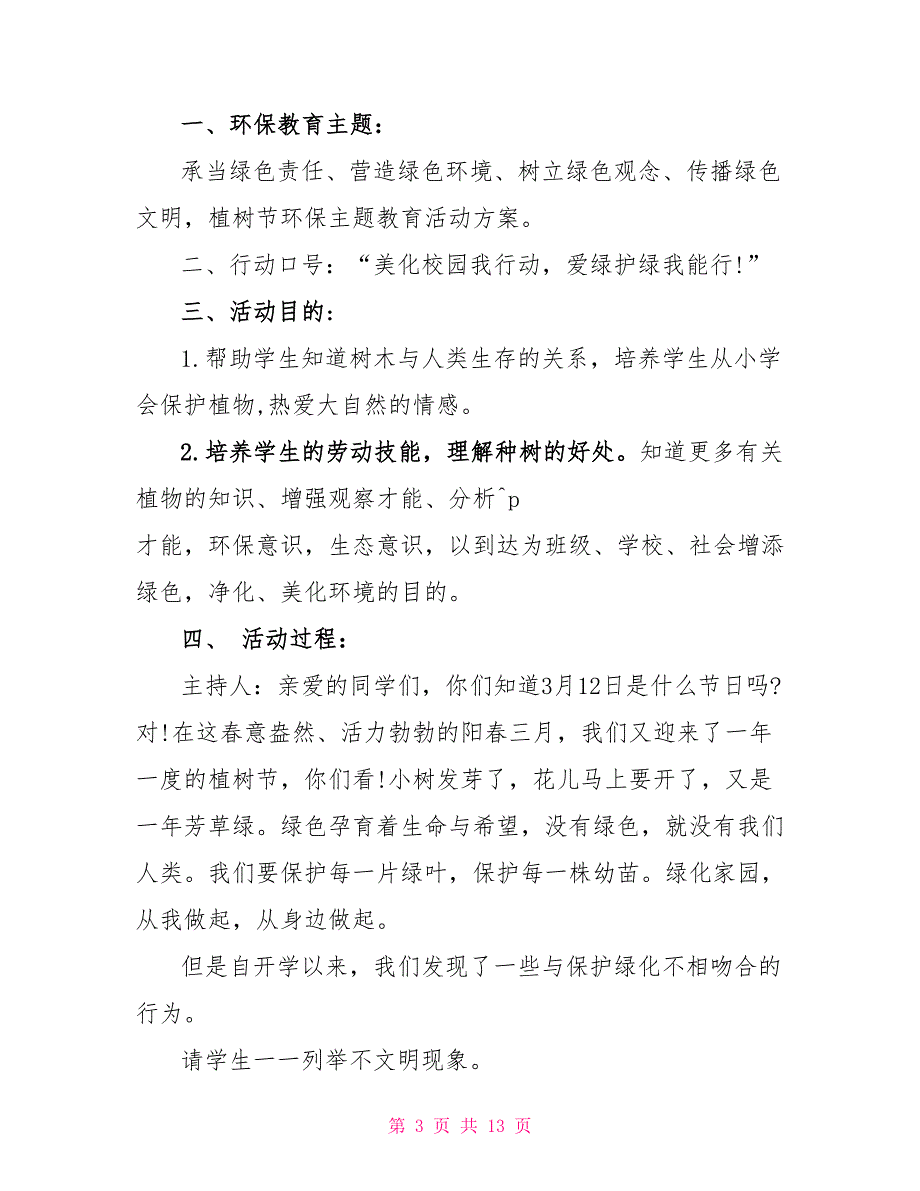 一、环保教育主题：
承当绿色责任、营造绿色环境、树立绿色观念、传播绿色
文明，植树节环保主题教育活动方案。
二、行动口号：“美化校园我行动，爱绿护绿我能行!”
三、活动目的:
1.帮助学生知道树木与人类生存的关系，培养学生从小学
会保护植物,热爱大自然的情感。
2.培养学生的劳动技能，理解种树的好处。知道更多有关
植物的知识、增强观察才能、分析^p
才能，环保意识，生态意识，以到达为班级、学校、社会增添
绿色，净化、美化环境的目的。
四、 活动过程：
主持人：亲爱的同学们，你们知道3月12日是什么节日吗?
对!在这春意盎然、活力勃勃的阳春三月，我们又迎来了一年
一度的植树节，你们看!小树发芽了，花儿马上要开了，又是
一年芳草绿。绿色孕育着生命与希望，没有绿色，就没有我们
人类。我们要保护每一片绿叶，保护每一株幼苗。绿化家园，
从我做起，从身边做起。
但是自开学以来，我们发现了一些与保护绿化不相吻合的
行为。
请学生一一列举不文明现象。
第 3 页 共 13 页